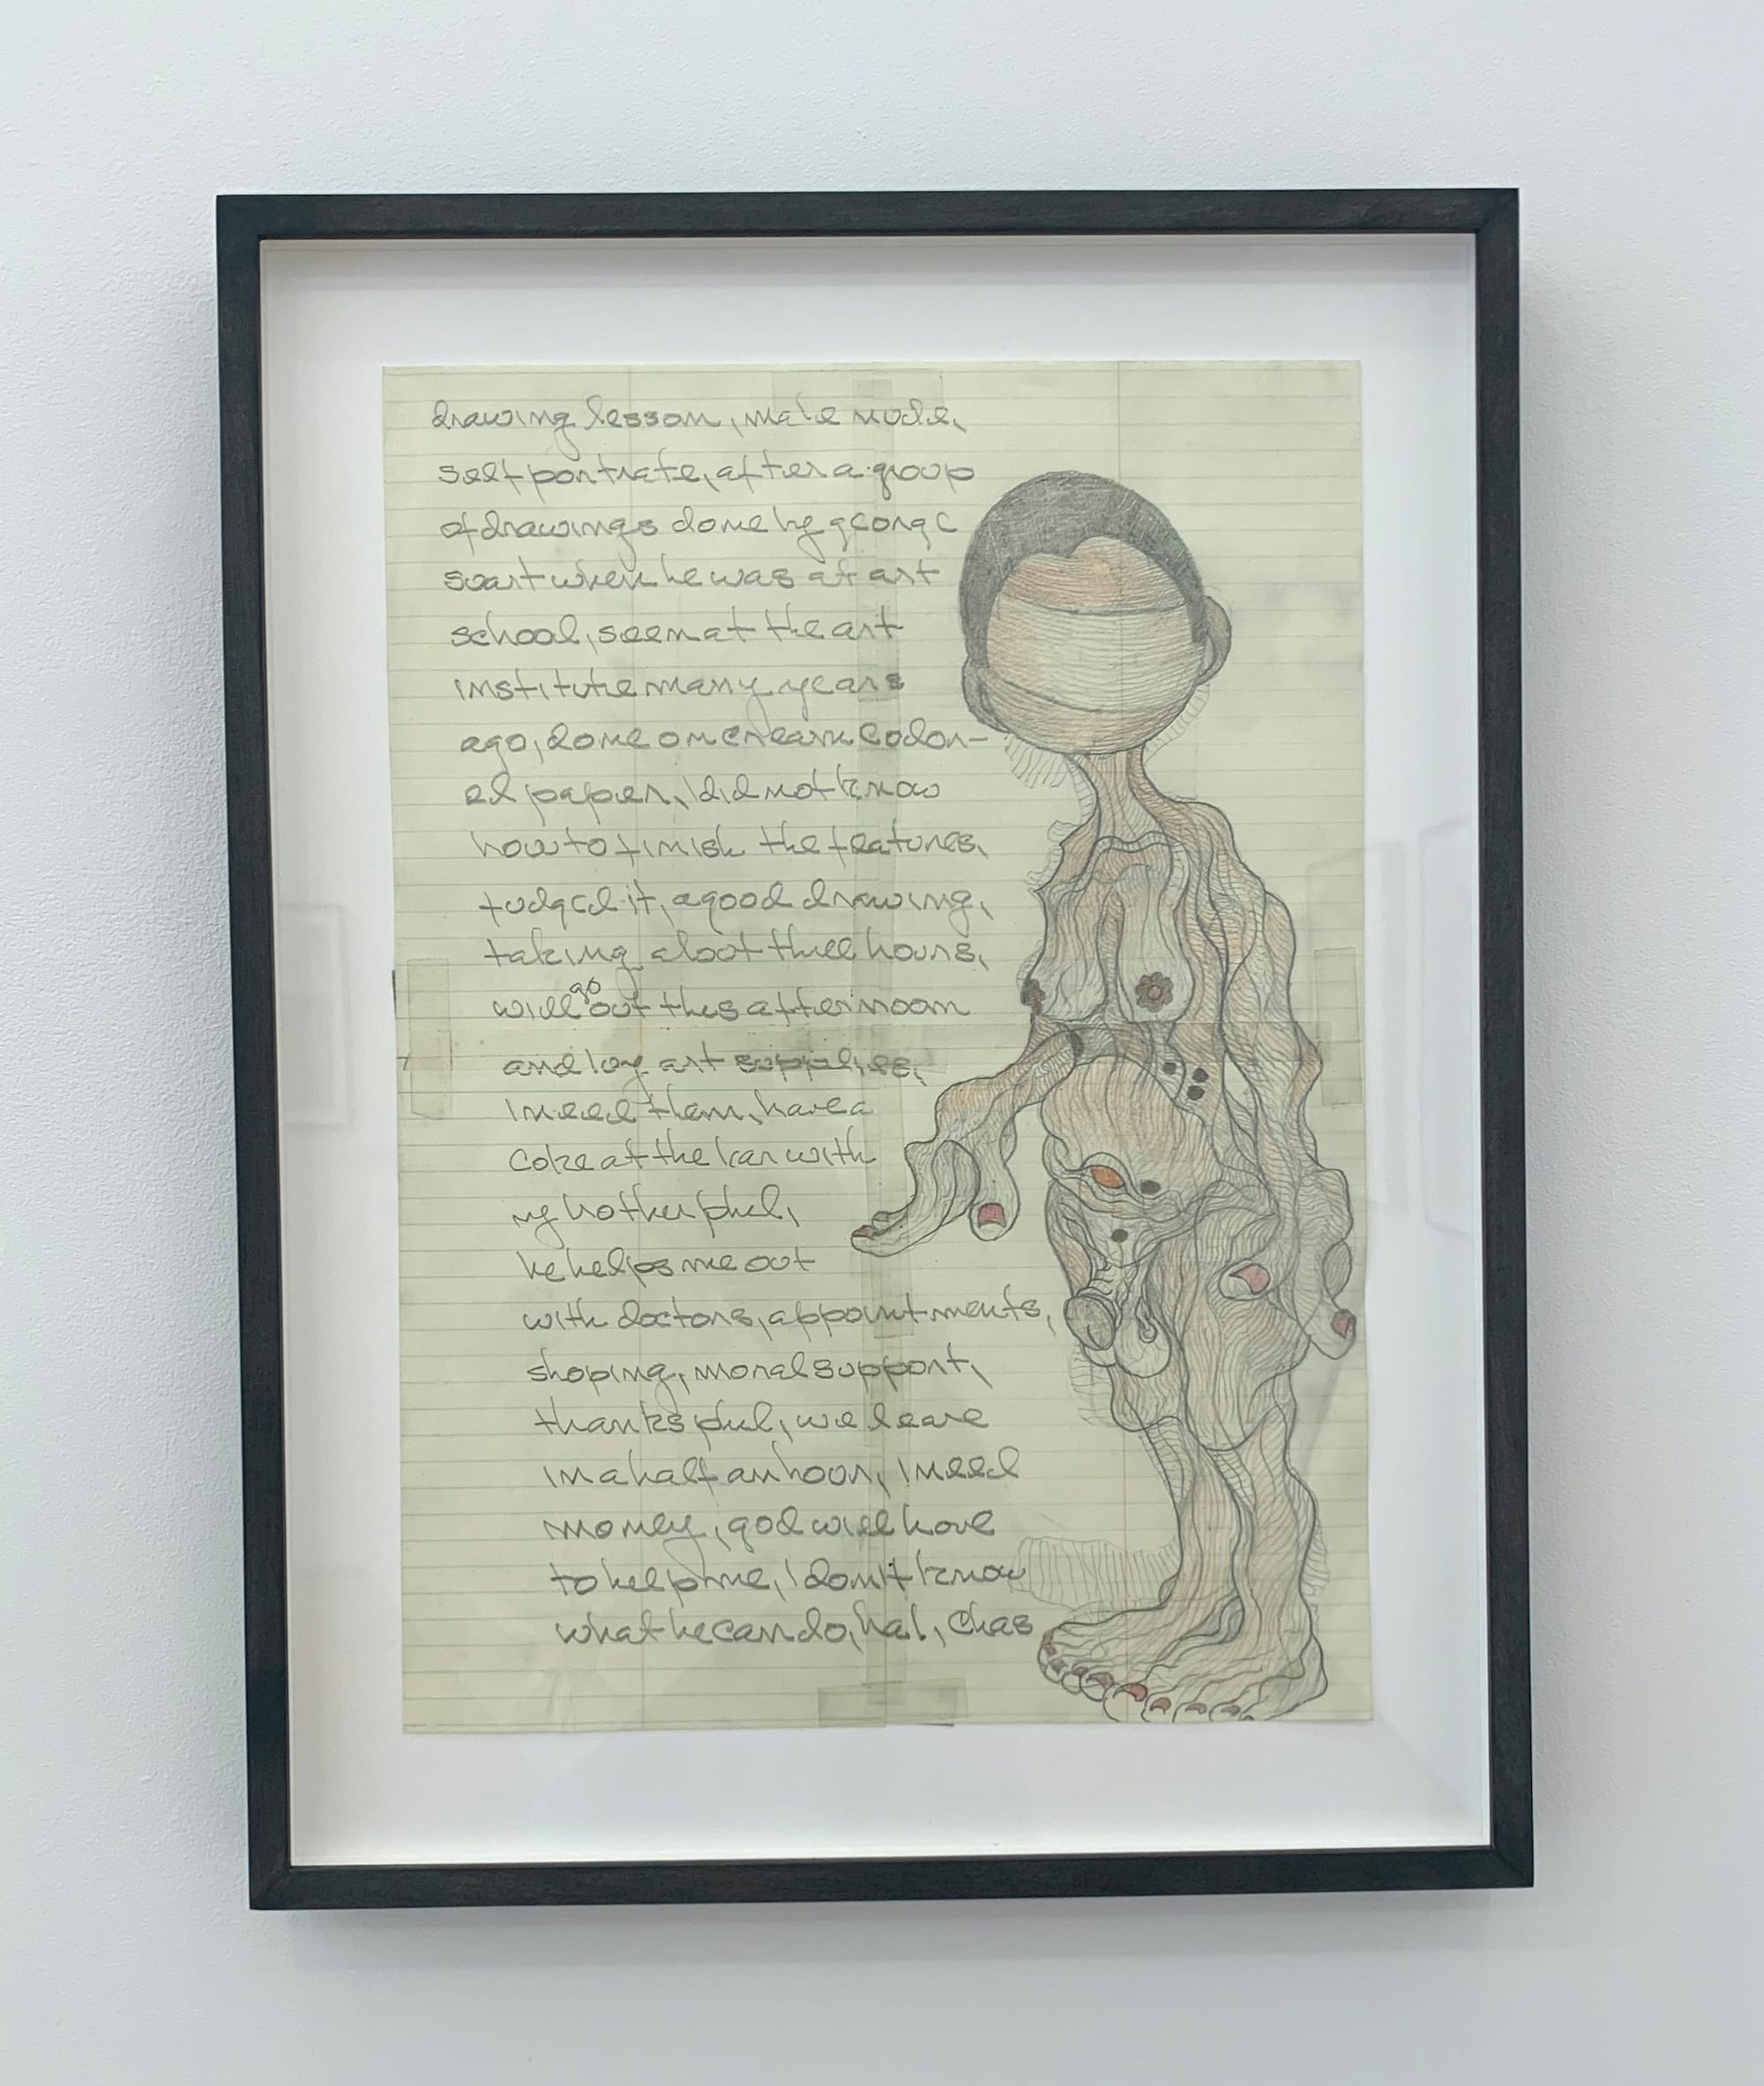 drawing lesson, male nude,
self portrate, after a group
of drawings done by george
suart when he was at art
school, seen at the art
institute many years
ago, done on cream color-
ed paper, I did not know
how to finish the features,
fudged it, a good drawing,
taking about three hours,
will go out this afternoon
and buy art supplies,
I need them, have a
coke at the bar with
my brother phil,
he helps me out
with doctors, appointments,
shoping, moral support,
thanks phil, we leave
in a half an hour, I need
money, god will have
to help me, I don't know
what he can do, ha!, Chas